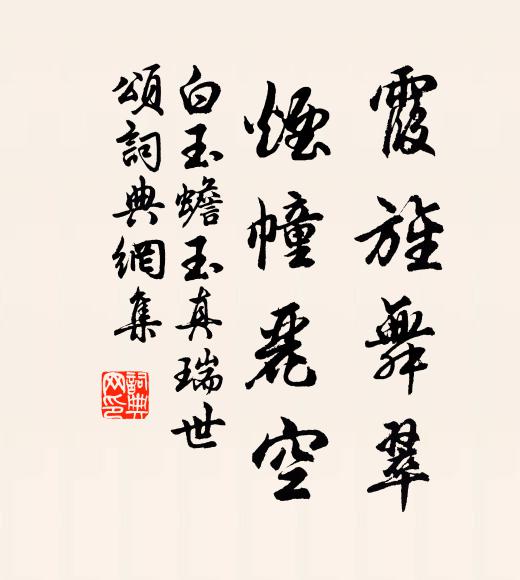 霞旌舞翠
煙幢麗空
白玉蟾玉真瑞世
頌詞典網集
詞典
网印